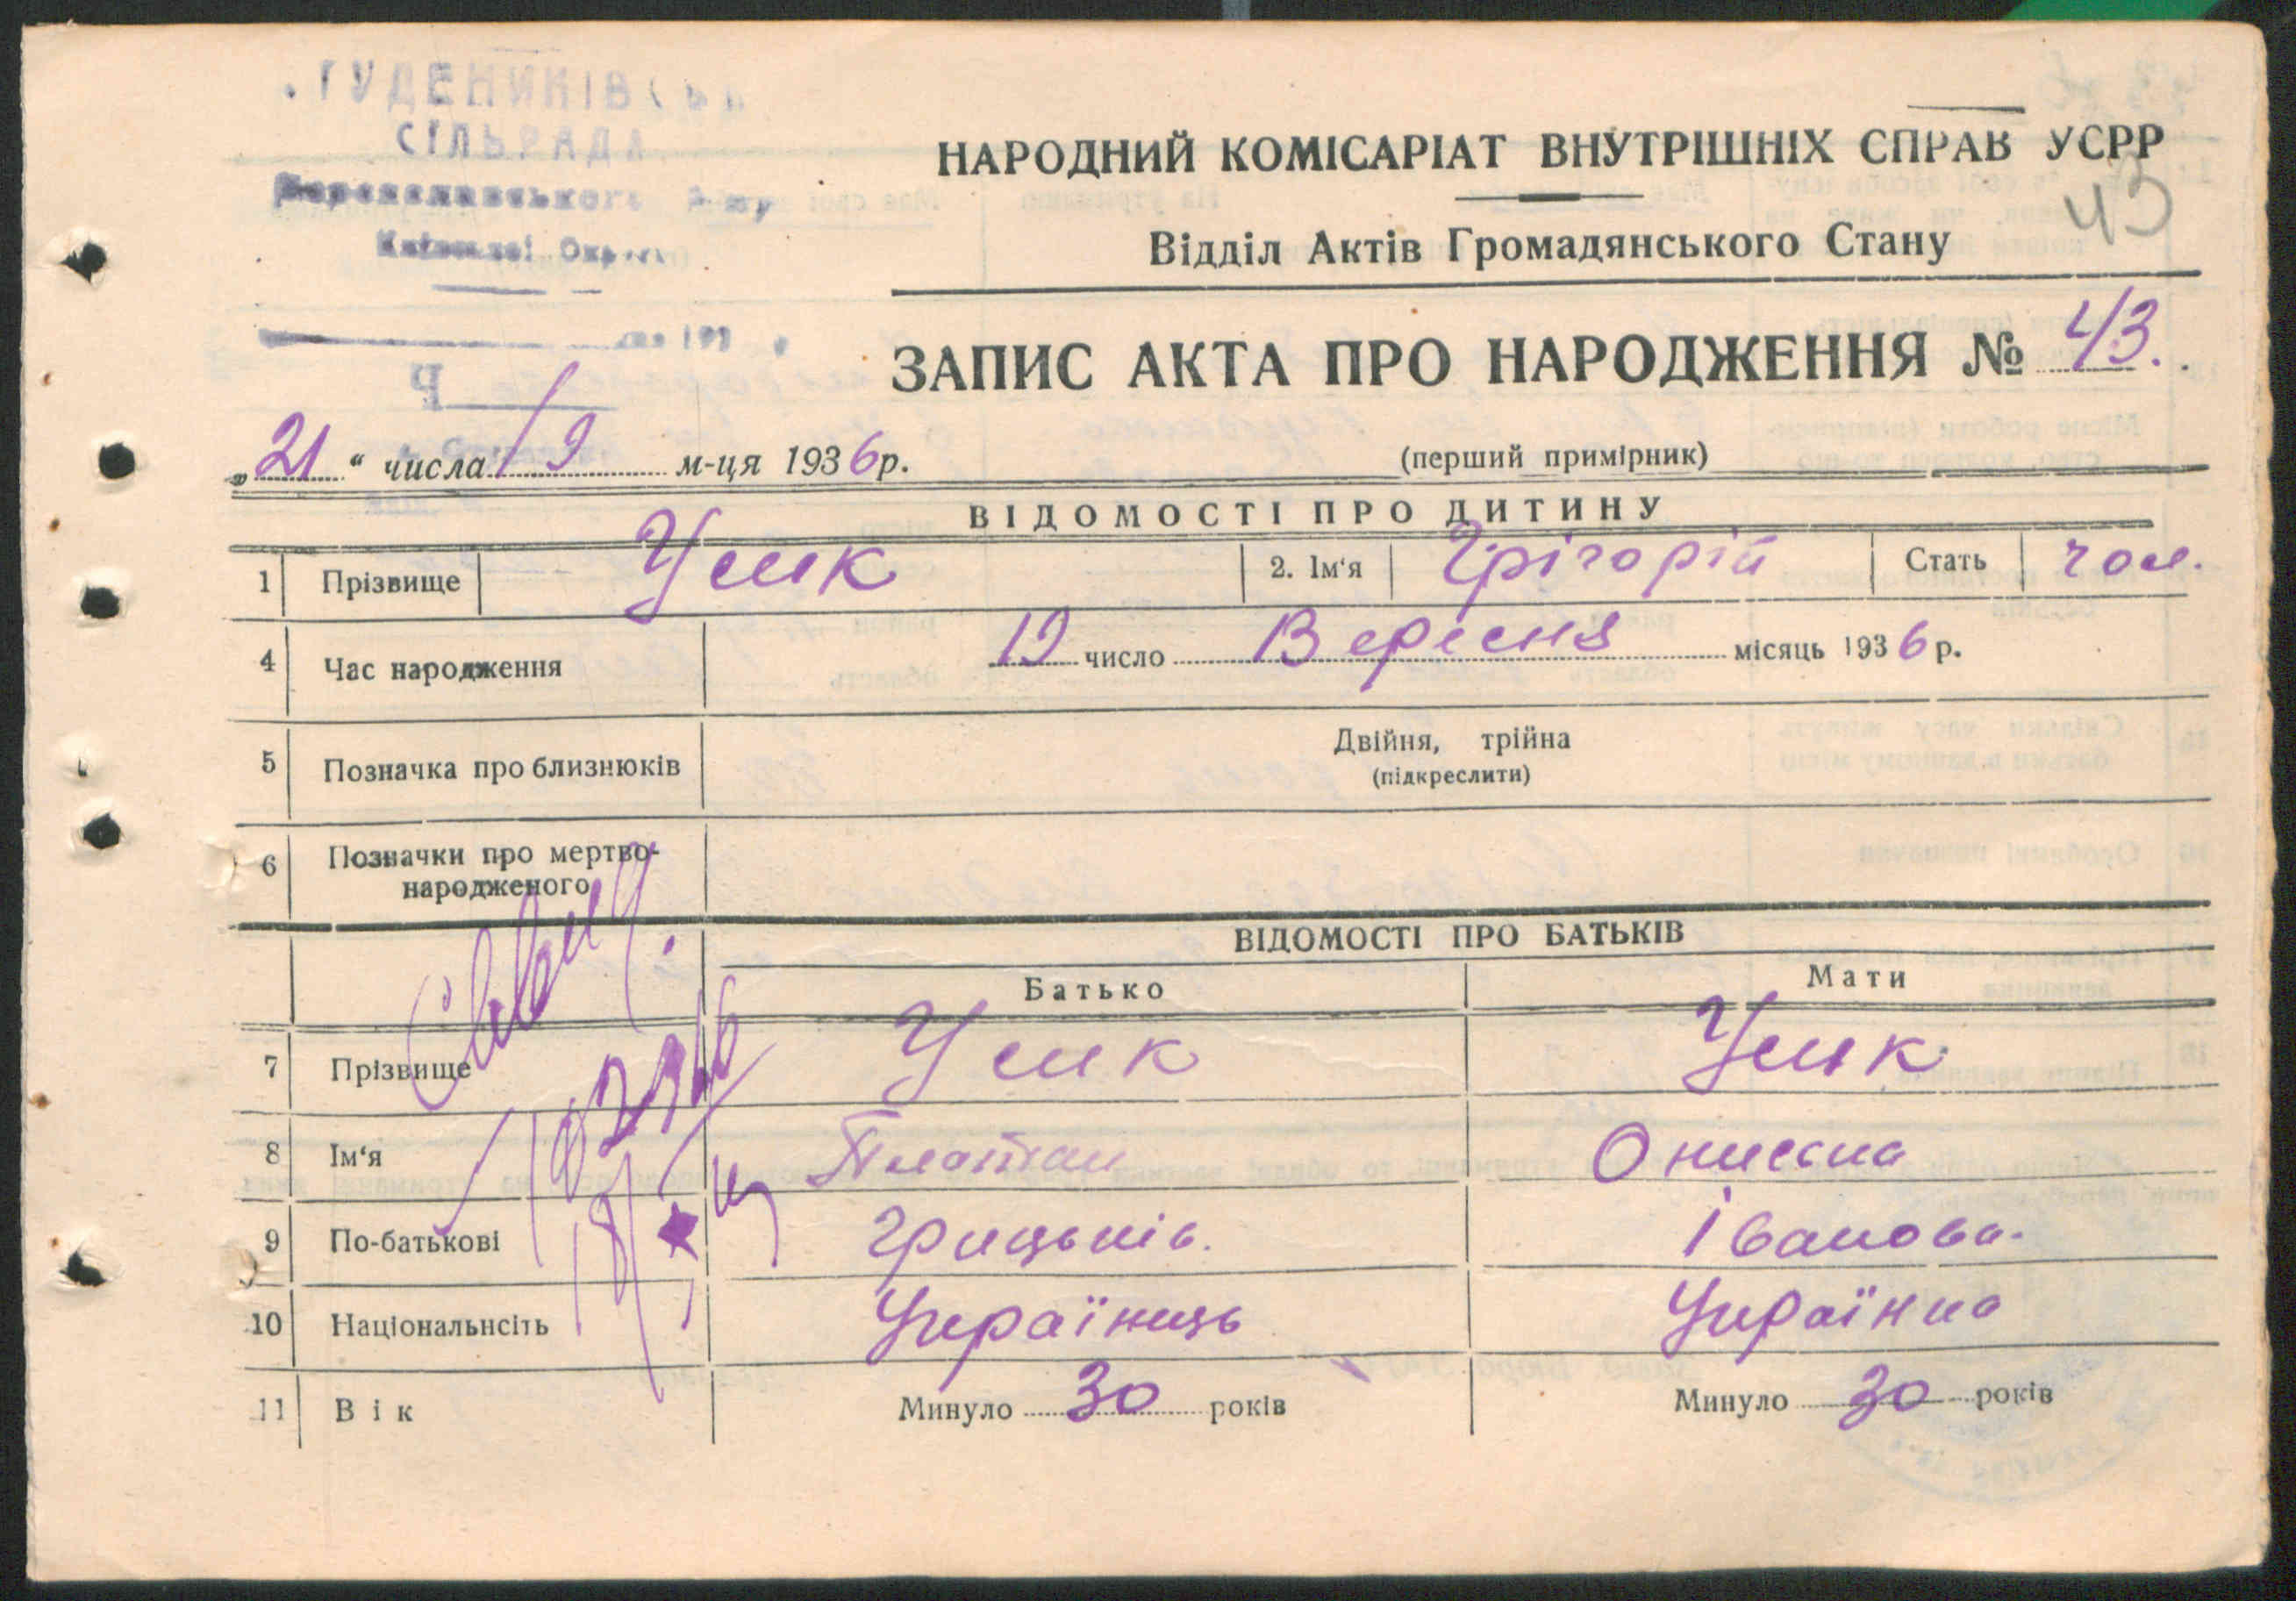 ГУДЕНИКІВСЬКА
СІЛЬРАДА
Переяславського
Київської Округи
НАРОДНИЙ КОМІСАРІАТ ВНУТРІШНІХ СПРАВ УСРР
43
Відділ Актів Громадянського Стану
ЗАПИС АКТА ПРО НАРОДЖЕННЯ № 43.
Ч
„21“ числа 19 м-ця 1936р.
(перший примірник)
ВІДОМОСТІ ПРО ДИТИНУ
1 Прізвище Усик 2. Ім‘я Грігорій Стать чол.
4 Час народження 19 число Вересня місяць 1936 р.
5 Позначка про близнюків Двійня, трійна
(підкреслити)
6 Позначки про мертво-
народженого
ВІДОМОСТІ ПРО БАТЬКІВ
Батько Мати
7 Прізвище Усик Усик
8 Ім‘я Платон Онисна
9 По-батькові Грицьків. Іванова.
10 Національнсіть Україниць Українка
11 Вік Минуло 30 років Минуло 30 років